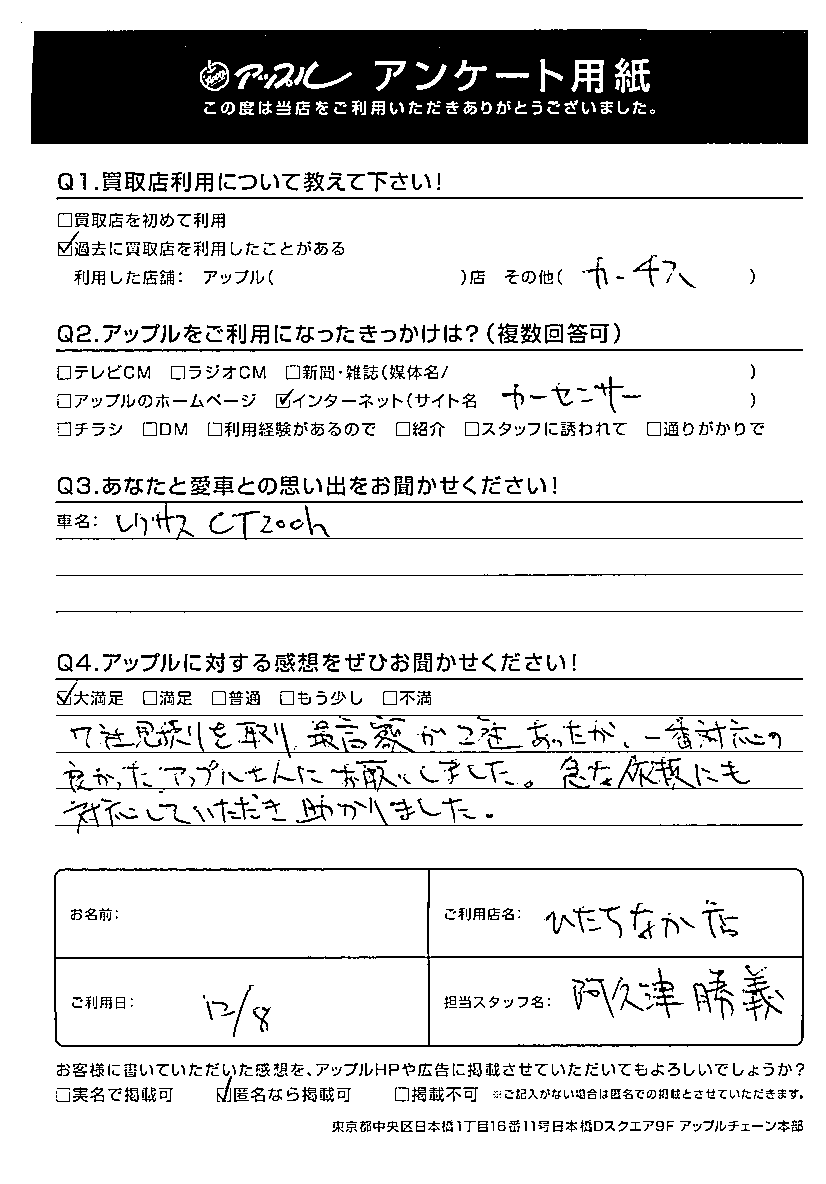 アップル アンケート用紙
この度は当店をご利用いただきありがとうございました。
Q1.買取店利用について教えて下さい!
□買取店を初めて利用
☑過去に買取店を利用したことがある
利用した店舗: アップル( )店 その他( カーチス )
Q2.アップルをご利用になったきっかけは?(複数回答可)
□テレビCM □ラジオCM □新聞・雑誌(媒体名/ )
□アップルのホームページ ☑インターネット(サイト名 カーセンサー )
□チラシ □DM □利用経験があるので □紹介 □スタッフに誘われて □通りがかりで
Q3.あなたと愛車との思い出をお聞かせください!
車名: レクサス CT200h
Q4.アップルに対する感想をぜひお聞かせください!
☑大満足 □満足 □普通 □もう少し □不満
7社見積りを取り、最高額が2社あったが、一番対応の
良かったアップルさんにお願いしました。急な依頼にも
対応していただき助かりました。
お名前:
ご利用店名: ひたちなか店
ご利用日: 12/8
担当スタッフ名: 阿久津勝義
お客様に書いていただいた感想を、アップルHPや広告に掲載させていただいてもよろしいでしょうか?
□実名で掲載可 ☑匿名なら掲載可 □掲載不可 ※ご記入がない場合は匿名での掲載とさせていただきます。
東京都中央区日本橋1丁目16番11号日本橋Dスクエア9F アップルチェーン本部